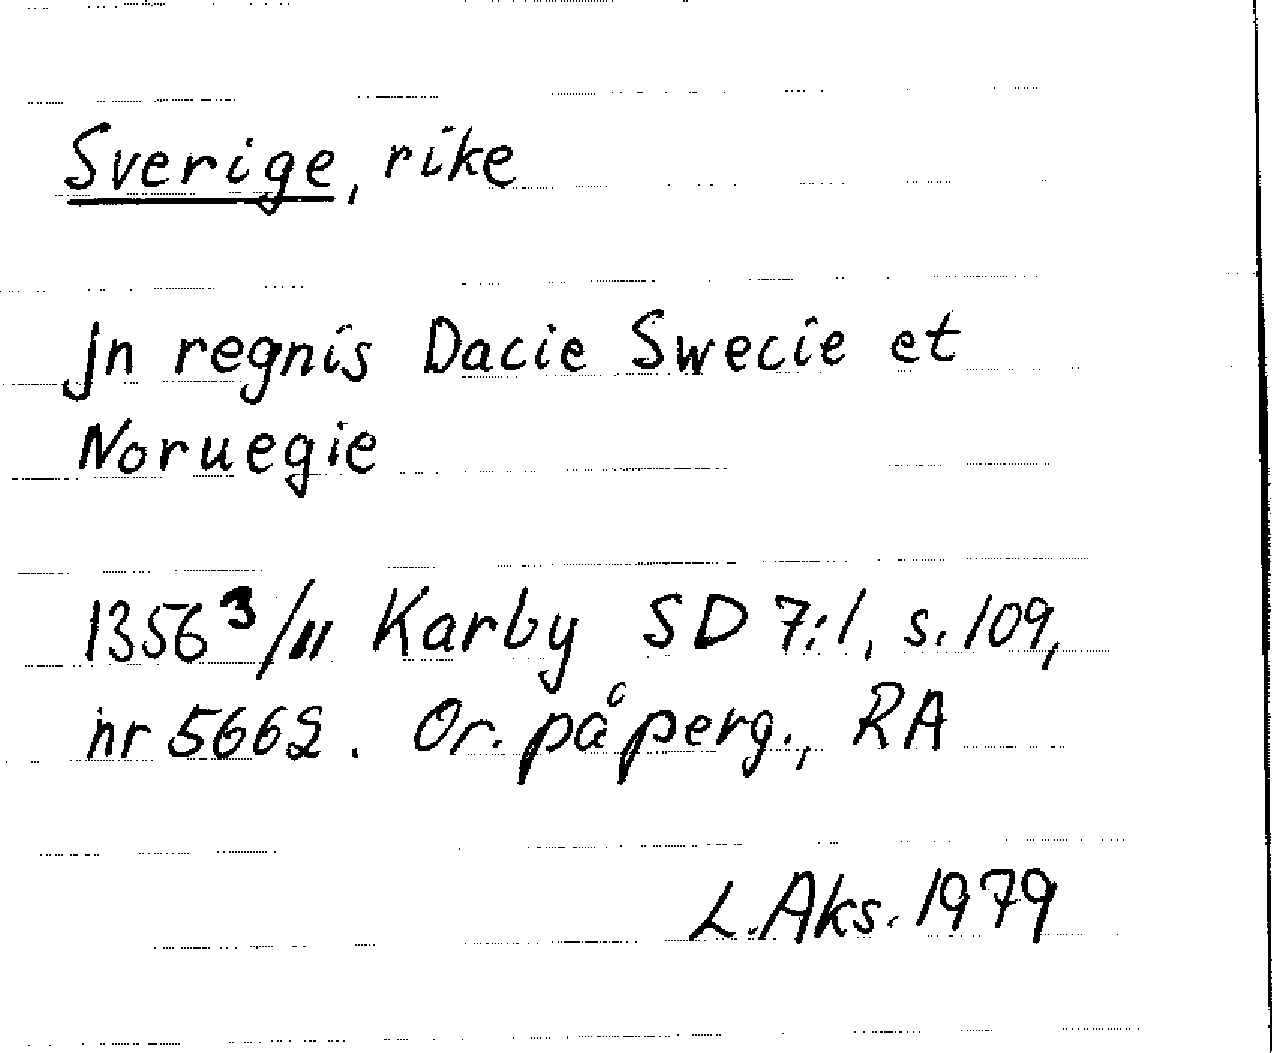 Sverige, rike
Jn regnis Dacie Swecie et
Noruegie
1356 3/11 Karby SD 7:1, s. 109,
nr 5662. Or. på perg., RA
L. Aks. 1979